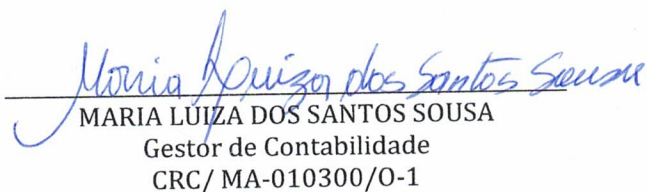 Maria Luiza dos Santos Sousa
MARIA LUIZA DOS SANTOS SOUSA
Gestor de Contabilidade
CRC/ MA-010300/O-1